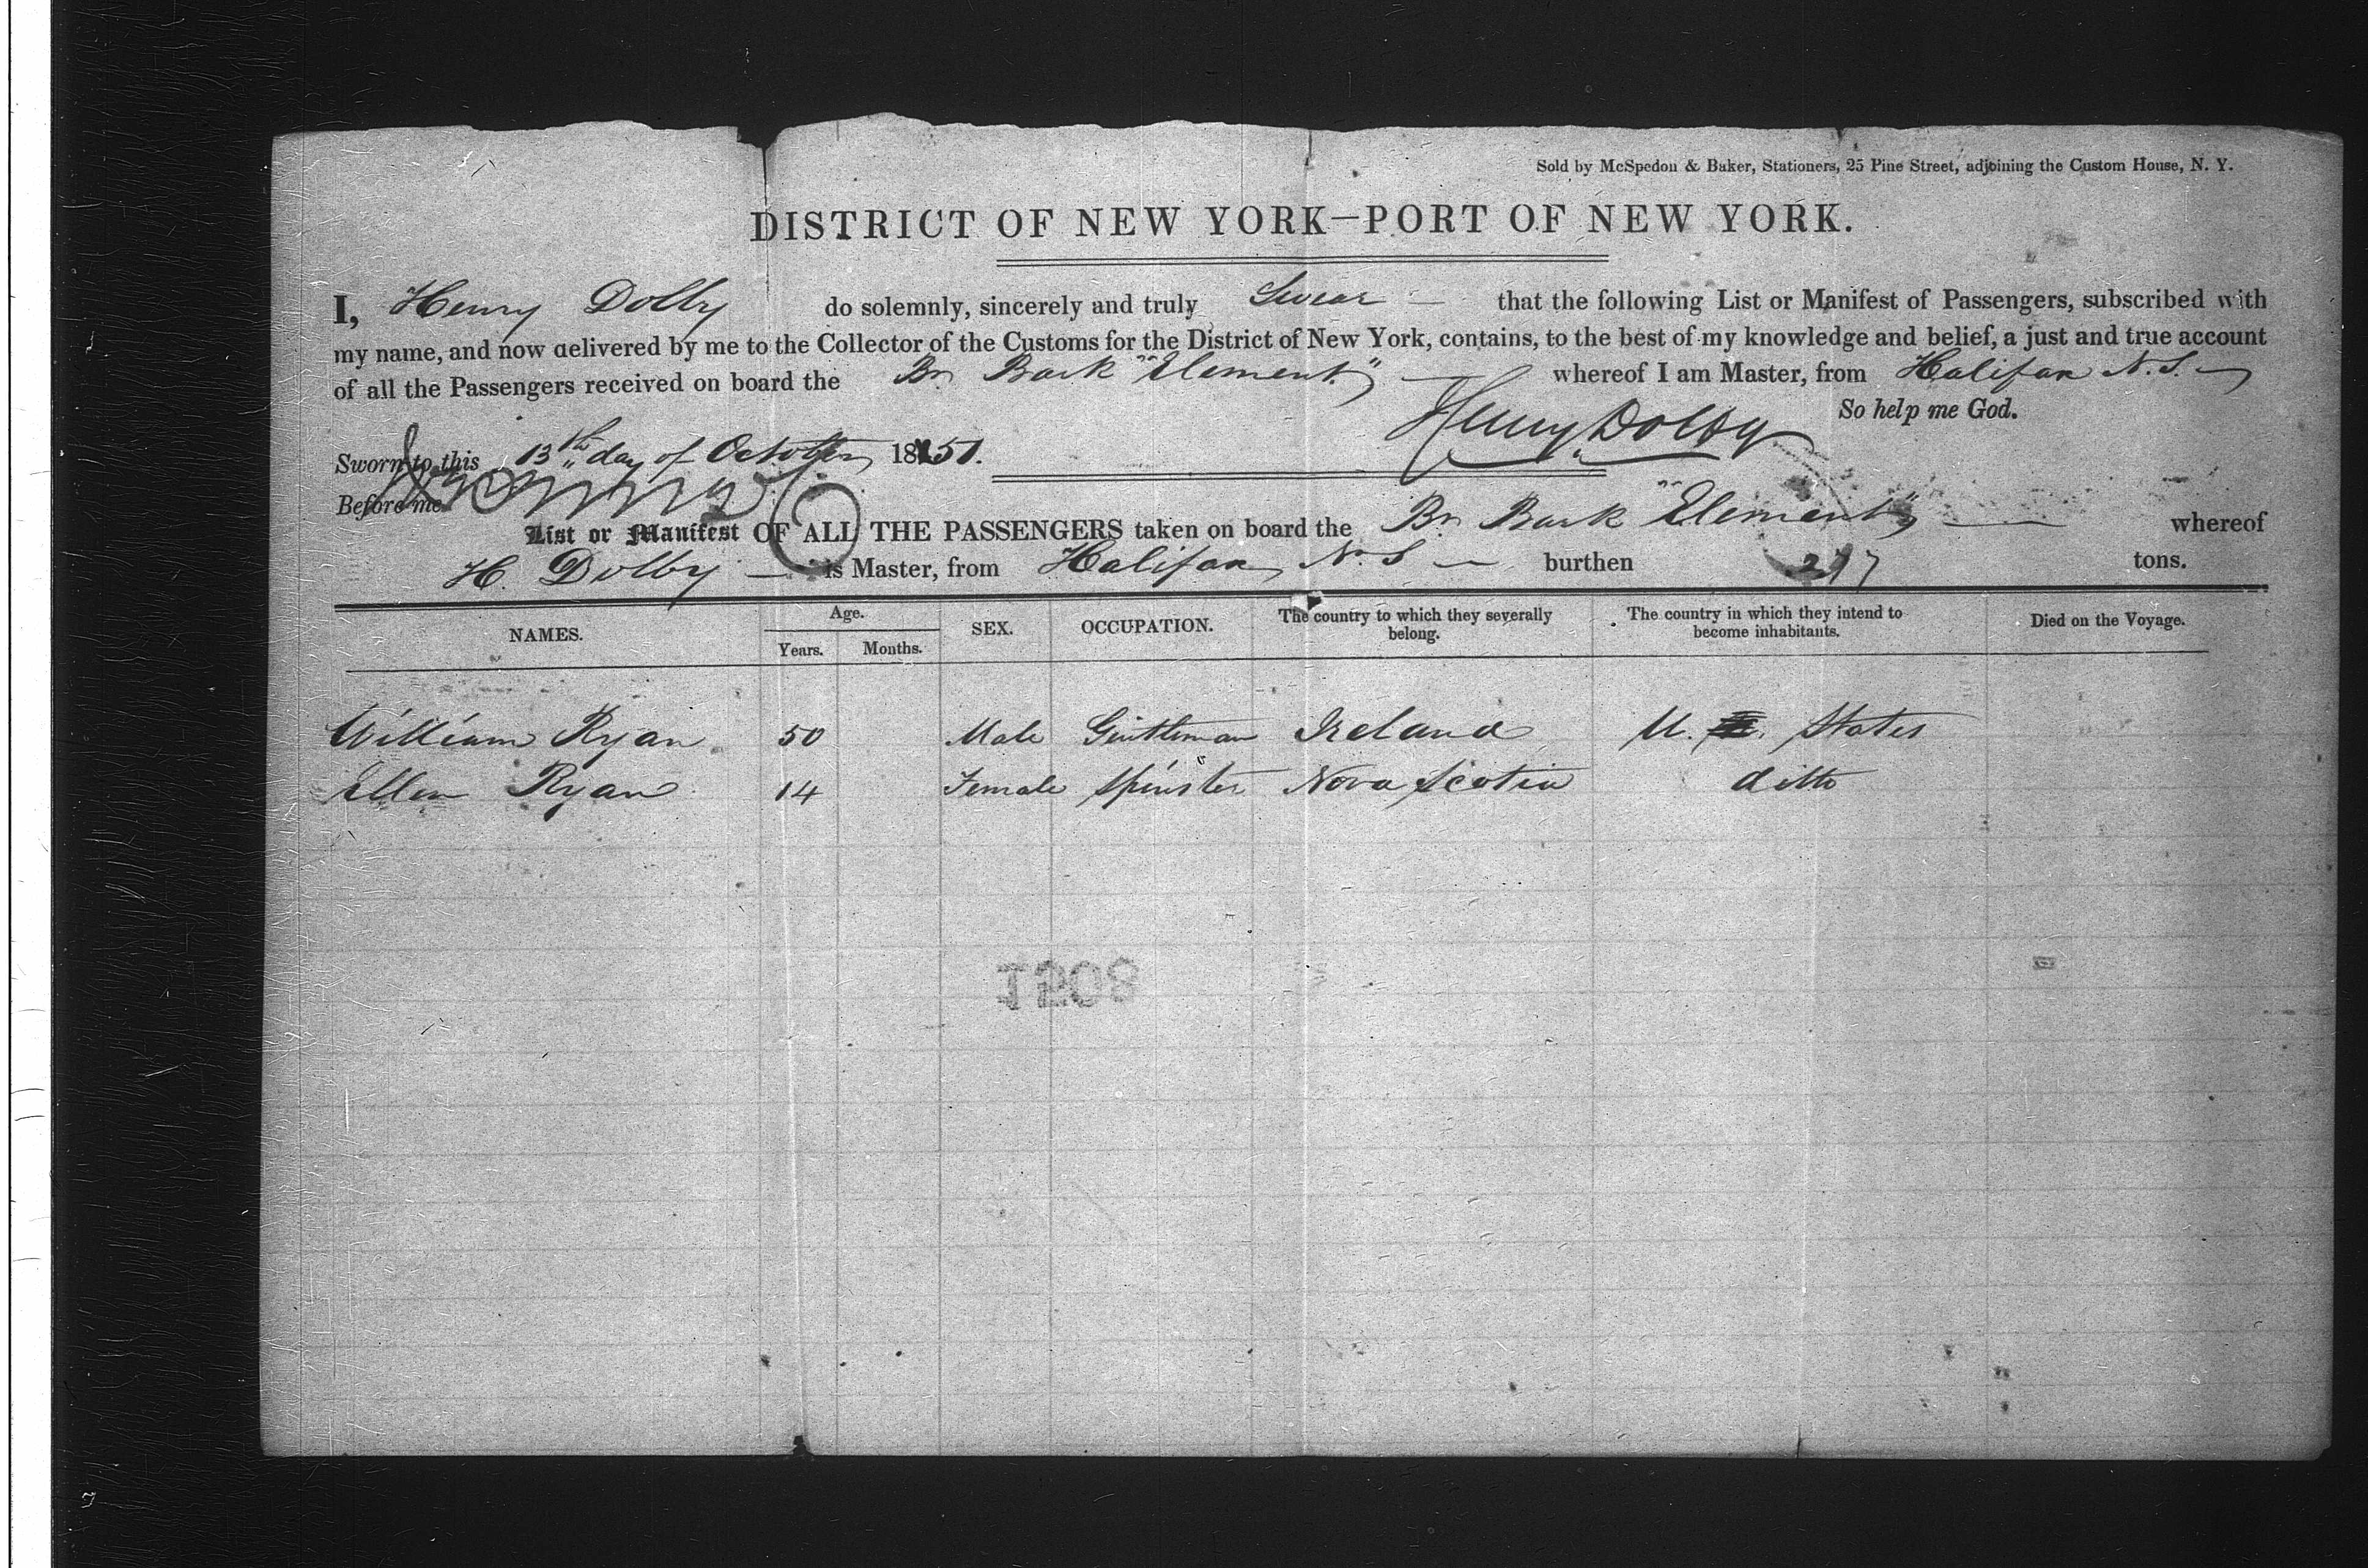 Sold by McSpedon & Baker, Stationers, 25 Pine Street, adjoining the Custom House, N. Y.
DISTRICT OF NEW YORK—PORT OF NEW YORK.
I, Henry Dolby do solemnly, sincerely and truly Swear — that the following List or Manifest of Passengers, subscribed with
my name, and now delivered by me to the Collector of the Customs for the District of New York, contains, to the best of my knowledge and belief, a just and true account
of all the Passengers received on board the Br Bark "Element" whereof I am Master, from Halifax N.S.
So help me God.
Henry Dolby
Sworn to this 13th day of October 1851.
Before me
List or Manifest OF ALL THE PASSENGERS taken on board the Br Bark "Element" whereof
H. Dolby — is Master, from Halifax N.S — burthen 217 tons.
NAMES. Age. Years. Months. SEX. OCCUPATION. The country to which they severally belong. The country in which they intend to become inhabitants. Died on the Voyage.
William Ryan 50 Male Gentleman Ireland U. States
Ellen Ryan 14 Female Spinster Nova Scotia ditto